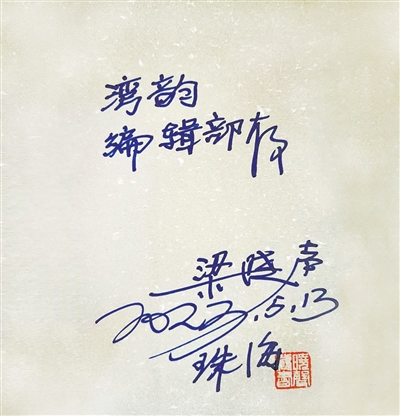 湾韵
编辑部存
梁晓声
2023.5.13
珠海